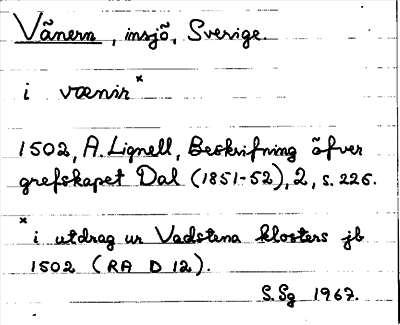 Vänern, insjö, Sverige.
i vænir*
1502, A. Lignell, Beskrifning öfver
grefskapet Dal (1851-52), 2, s. 226.
* i utdrag ur Vadstena klosters jb
1502 (RA D 12).
S.Sg 1967.